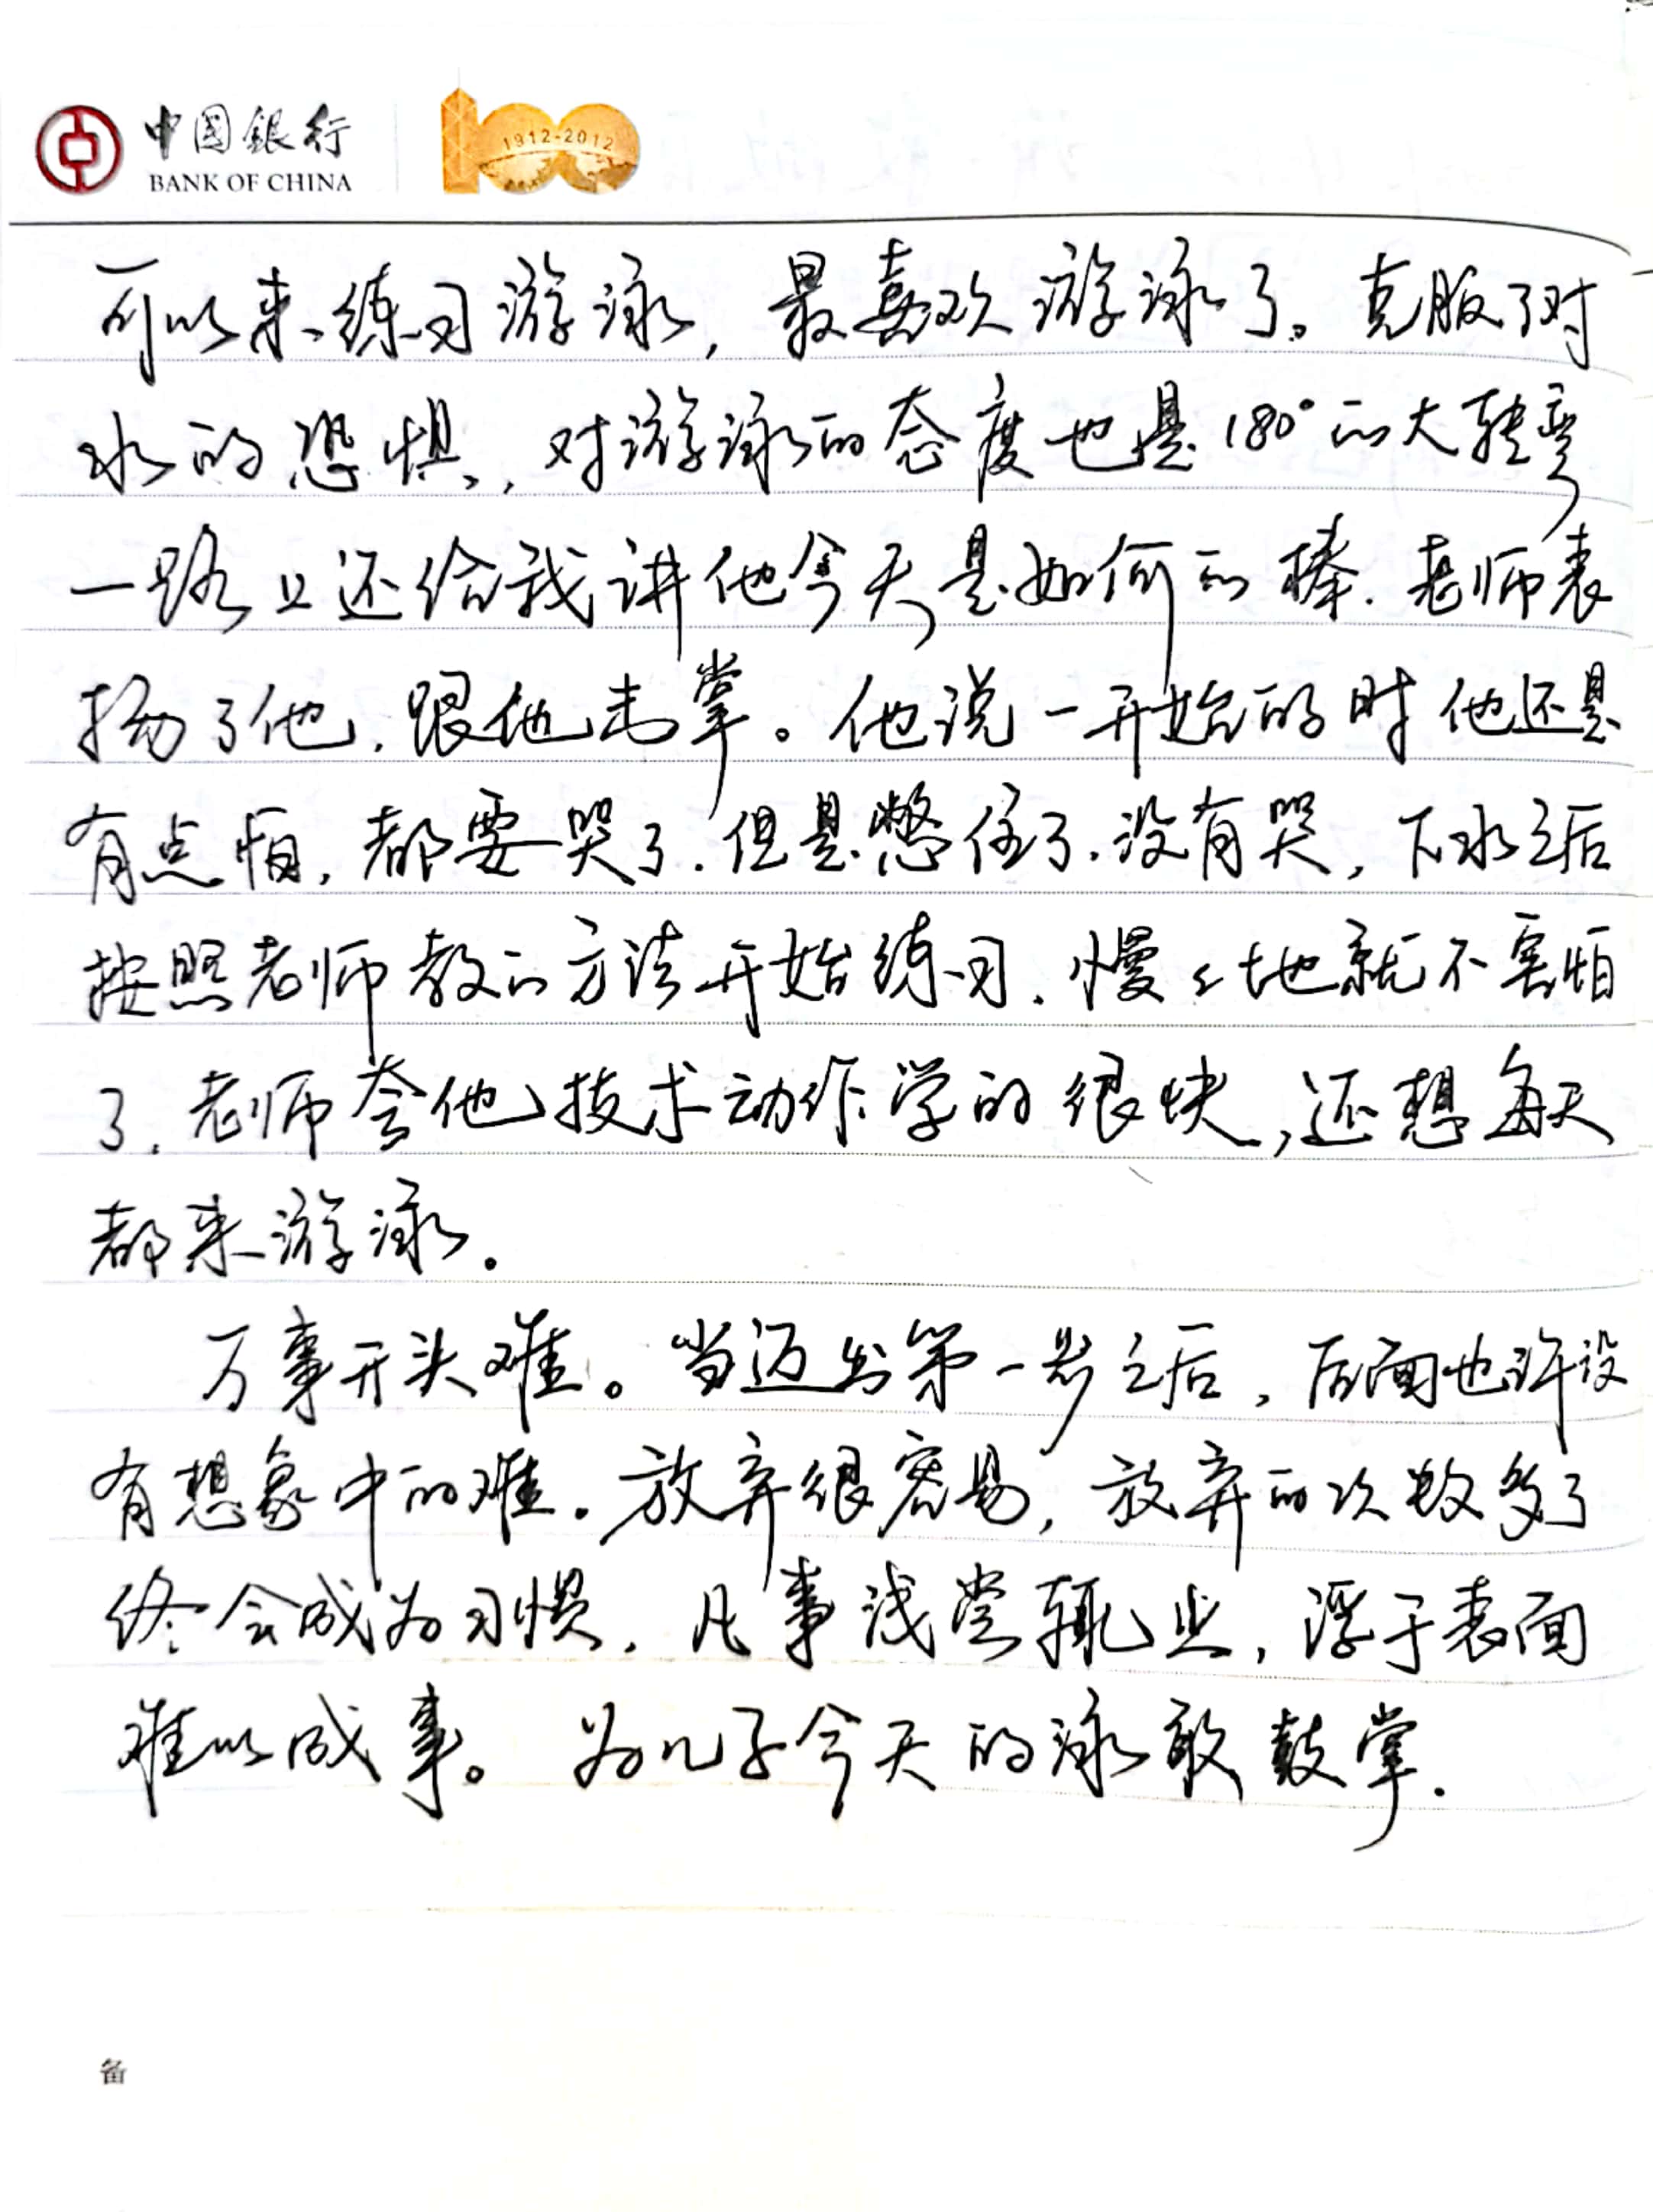 中国銀行
BANK OF CHINA
1912-2012
可以来练习游泳，最喜欢游泳了。克服了对
水的恐惧，对游泳的态度也是180°的大转弯
一路上还给我讲他今天是如何的棒．老师表
扬了他，跟他击掌。他说一开始的时他还是
有点怕，都要哭了．但是憋住了．没有哭，下水之后
按照老师教的方法开始练习．慢々地就不害怕
了．老师夸他技术动作学的很快，还想每天
都来游泳。
万事开头难。当迈出第一步之后，后面也许没
有想象中的难。放弃很容易，放弃的次数多了
终会成为习惯．凡事浅尝辄止，浮于表面
难以成事。为儿子今天的泳敢鼓掌．
备